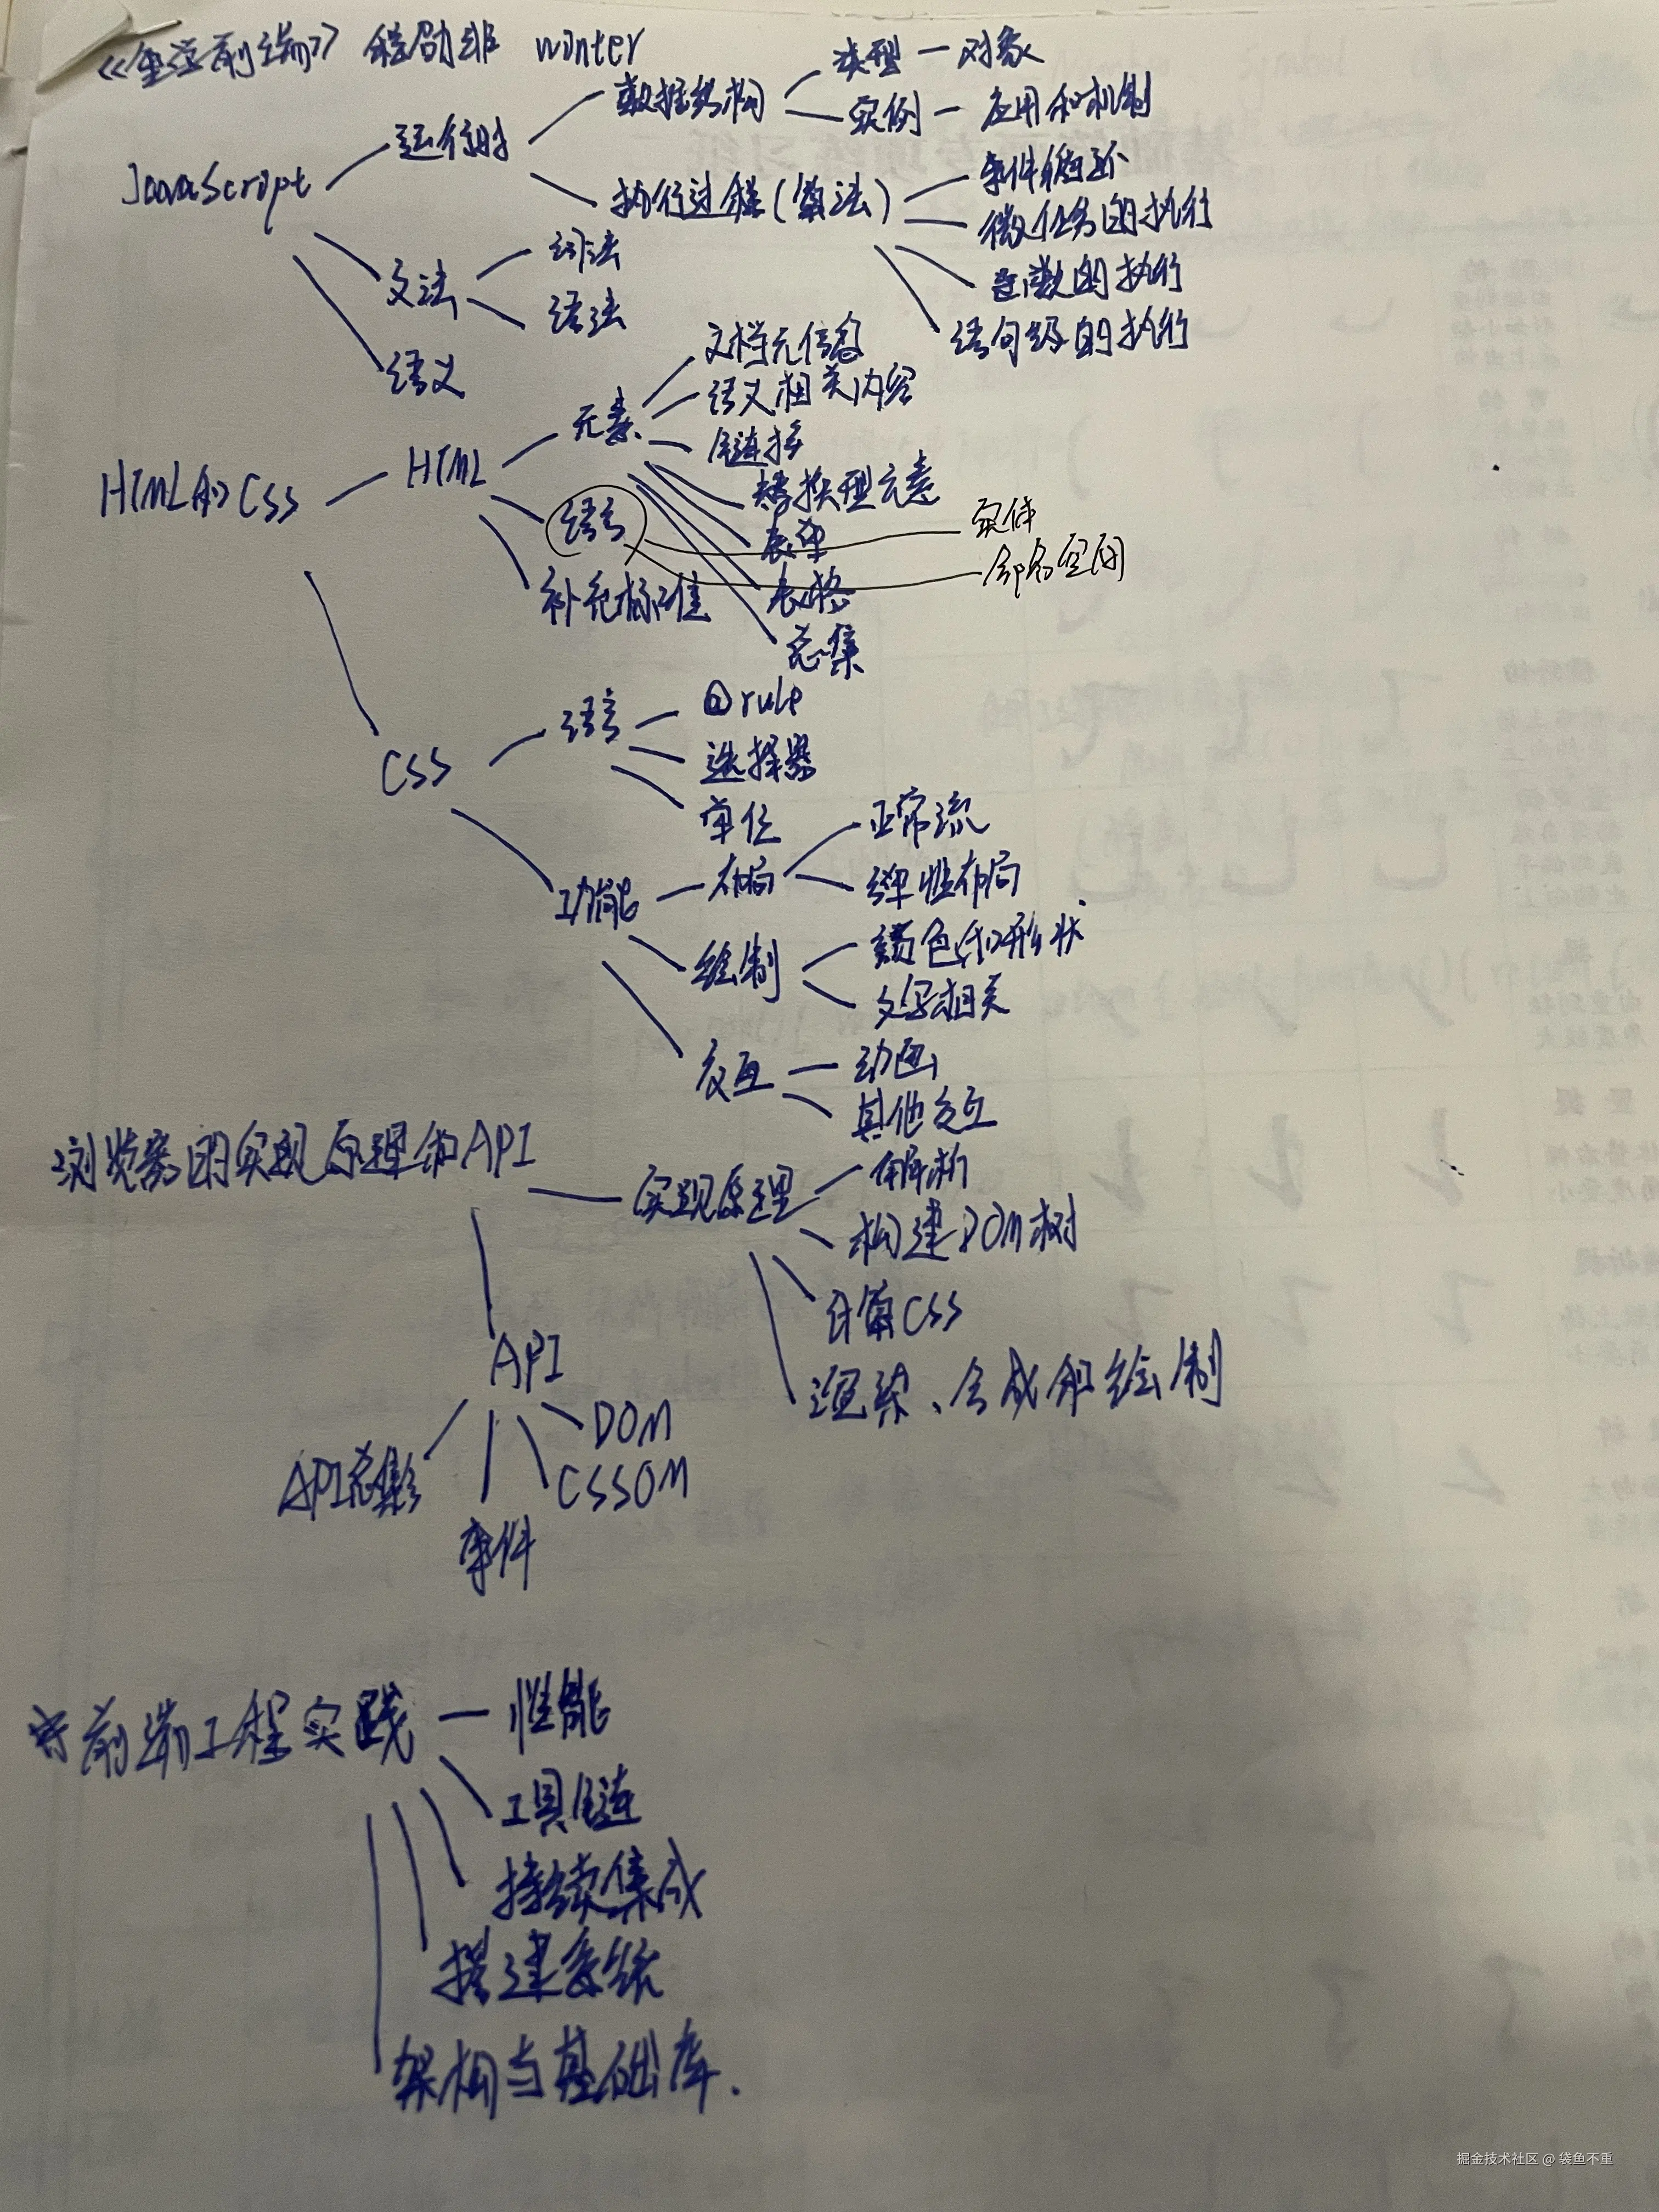 《重学前端》 程劭非 winter
JavaScript
运行时
数据结构
类型 — 对象
实例 — 应用和机制
执行过程(算法)
事件循环
微任务的执行
函数的执行
语句级的执行
文法
词法
语法
语义
HTML和CSS
HTML
元素
文档元信息
语义相关内容
链接
替换型元素
表单
表格
总集
语言
实体
命名空间
补充标准
CSS
语言
@rule
选择器
单位
功能
布局
正常流
弹性布局
绘制
颜色和形状
文字相关
交互
动画
其他交互
浏览器的实现原理和API
实现原理
解析
构建DOM树
计算CSS
渲染、合成和绘制
API
DOM
CSSOM
事件
API总集
前端工程实践
性能
工具链
持续集成
搭建系统
架构与基础库.
掘金技术社区 @ 袋鱼不重